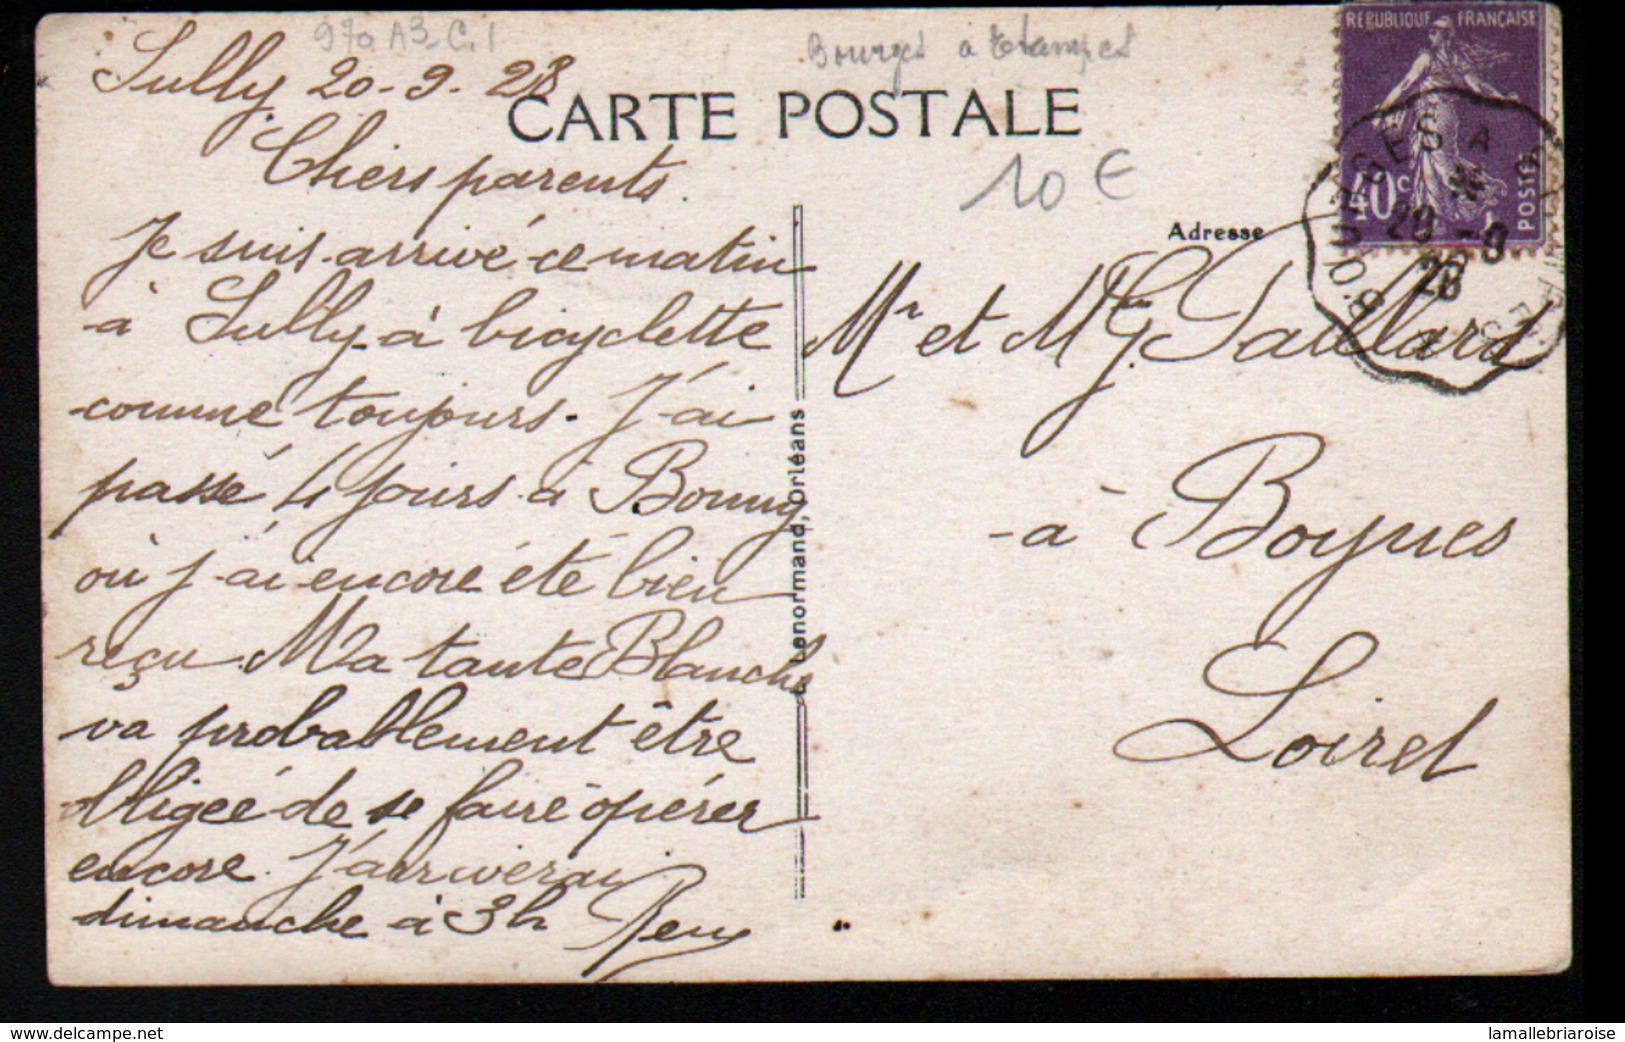 970 A3-C.1
Bourges a Etampes
Sully 20-9-28
CARTE POSTALE
10 €
REPUBLIQUE FRANÇAISE
40c
POSTES
BOURGES A
20 - 9
28
Chers parents.
Je suis arrivé ce matin
à Sully à bicyclette
comme toujours. J'ai
passé 4 jours à Boumy
où j'ai encore été bien
reçu. Ma tante Blanche
va probablement être
obligée de se faire opérer
encore. J'arriverai
dimanche à 3h
Lenormand, Orléans
Adresse
Mr et Mme G. Taillard
- à - Boynes
Loiret
delcampe.net
lamallebriaroise